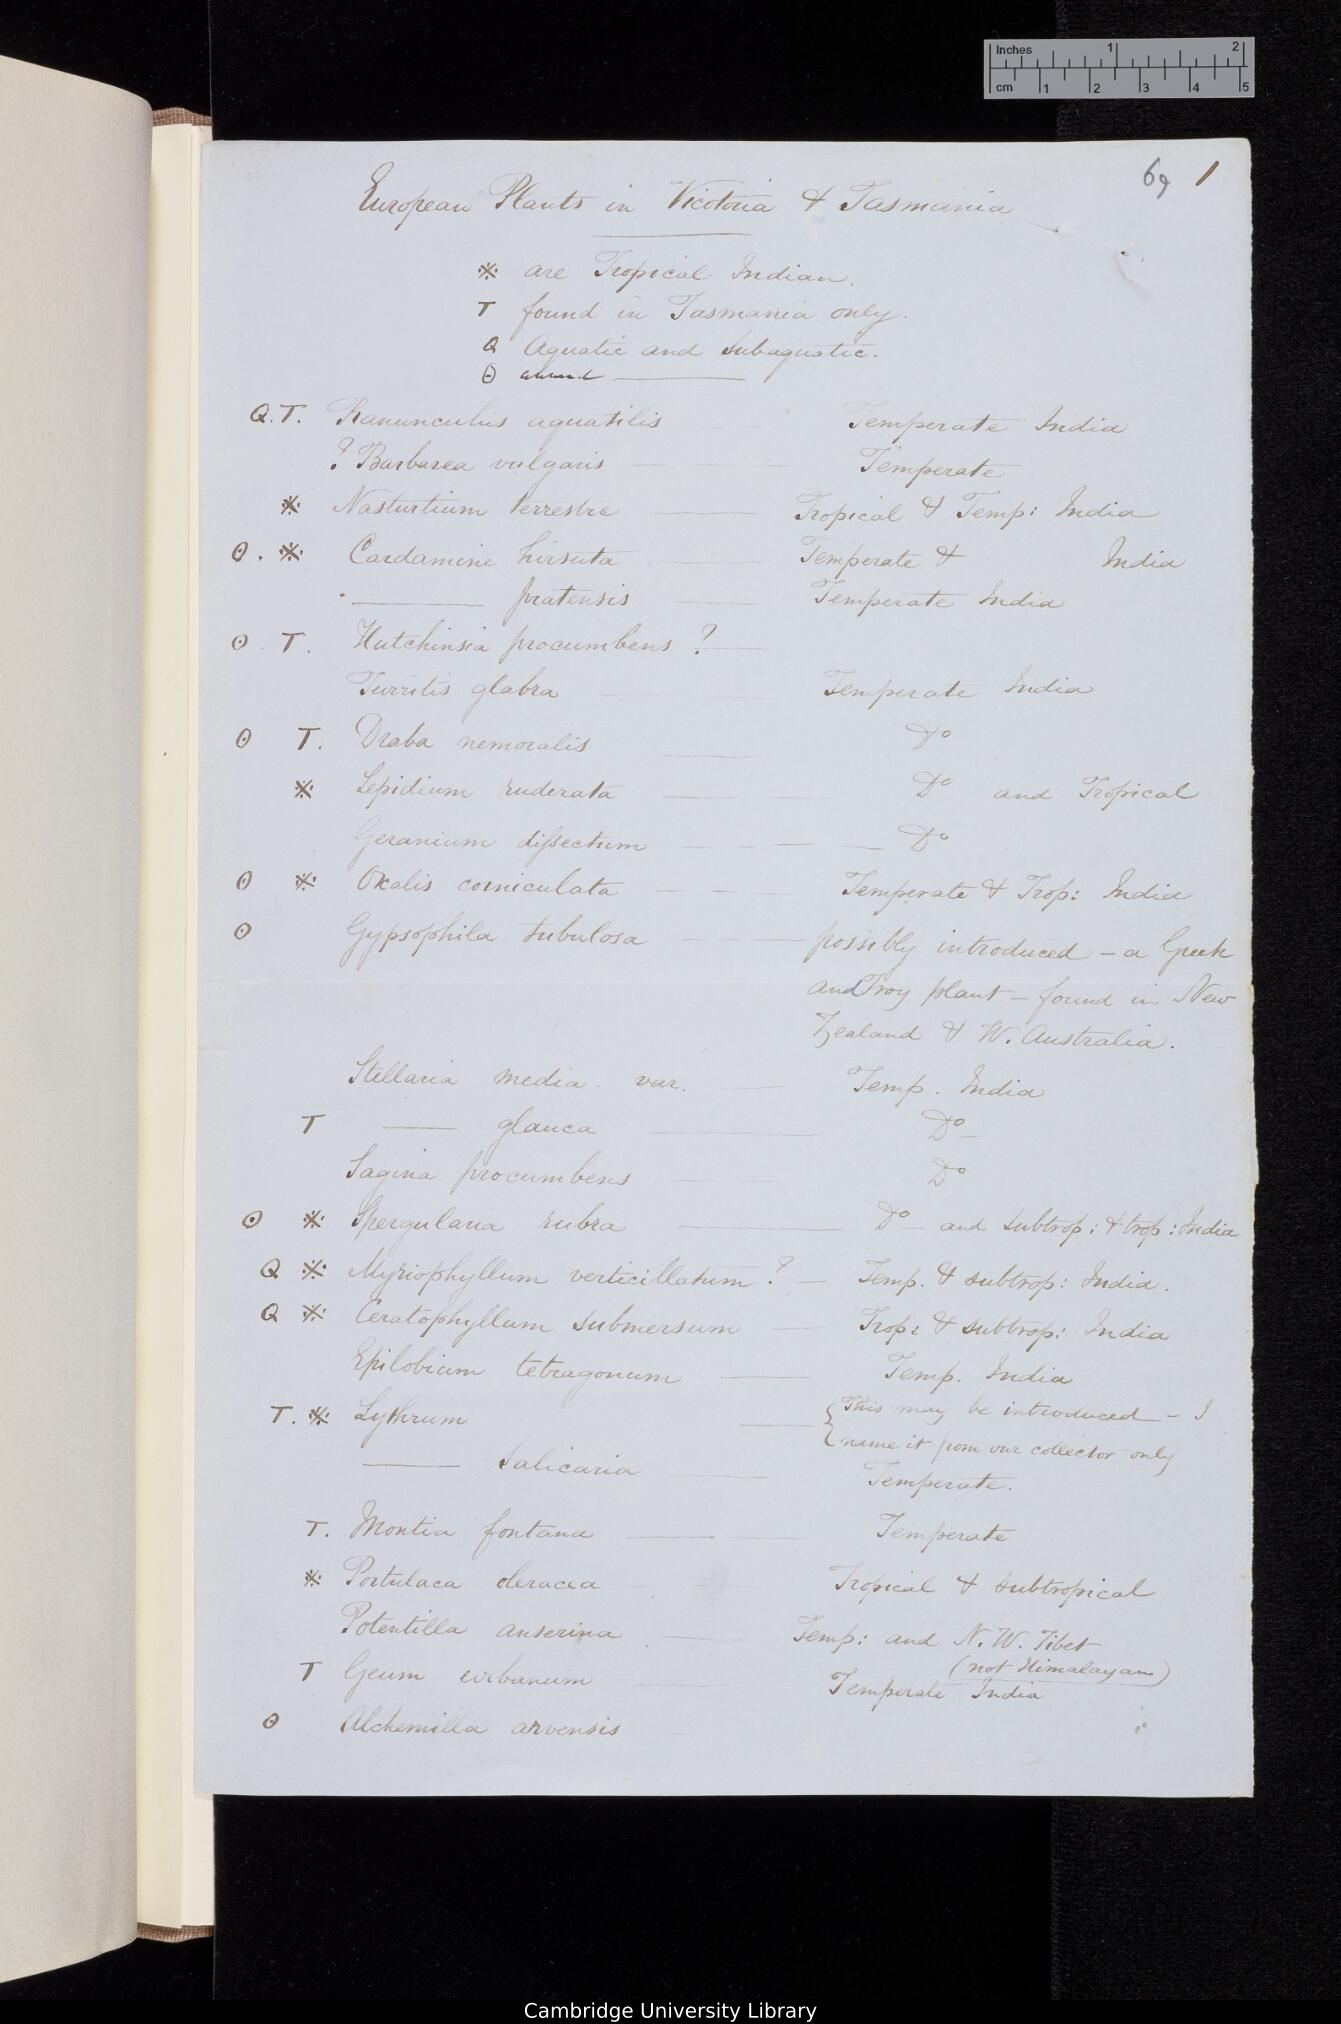 Inches 1 2
cm 1 2 3 4 5
69 1
European Plants in Vicotoria & Tasmania
※ are Tropical Indian.
T found in Tasmania only.
Q Aquatic and Subaquatic.
ʘ annual
Q. T. Ranunculus aquatilis Temperate India
? Barbarea vulgaris Temperate
※ Nasturtium terrestre Tropical & Temp: India
ʘ. ※ Cardamine hirsuta Temperate & India
——— pratensis Temperate India
ʘ. T. Hutchinsia procumbens ?
Turritis glabra Temperate India
ʘ T. Draba nemoralis Do
※ Lepidium ruderata Do and Tropical
Geranium dissectum Do
ʘ ※ Oxalis corniculata Temperate & Trop: India
ʘ Gypsophila tubulosa possibly introduced – a Greek
and Troy plant – found in New
Zealand & W. Australia.
Stellaria media. var. Temp. India
T ——— glauca Do
Sagina procumbens Do
ʘ ※ Spergularia rubra Do and subtrop: & trop: India
Q ※ Myriophyllum verticillatum ? Temp. & subtrop: India.
Q ※ Ceratophyllum submersum Trop: & subtrop: India
Epilobium tetragonum Temp. India
T. ※ Lythrum { This may be introduced – I
name it from our collector only
——— Salicaria Temperate.
T. Montia fontana Temperate
※ Portulaca oleracea Tropical & subtropical
Potentilla anserina Temp: and N. W. Tibet
(not Himalayan)
T Geum urbanum Temperate India
ʘ Alchemilla arvensis
Cambridge University Library